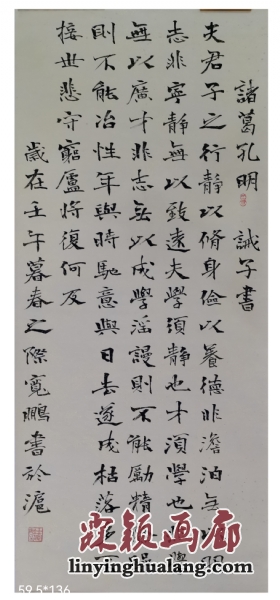 諸葛孔明 誡子書
夫君子之行靜以脩身儉以養德非澹泊無以明
志非寧靜無以致遠夫學須靜也才須學也學
無以廣才非志無以成學淫謾則不能勵精險
則不能冶性年與時馳意與日去遂成枯落
接世悲守窮廬將復何及
歲在壬午暮春之際寬鵬書於滬
霖颖画廊
linyinghualang.com
59.5*136